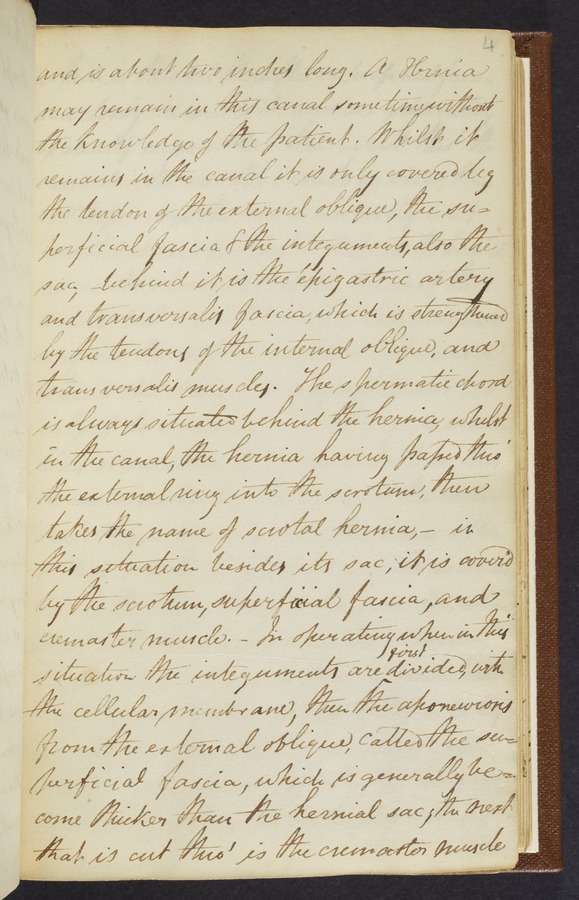 4
and is about two inches long. A Hernia
may remain in this canal sometime without
the knowledge of the patient. Whilst it
remains in the canal it is only covered by
the tendon of the external oblique, the su=
perficial fascia & the integuments, also the
sac, - behind it, is the epigastric artery
and transversalis fascia, which is strengthened
by the tendons of the internal oblique, and
transversalis muscles. The spermatic chord
is always situated behind the hernia, whilst
in the canal, the hernia having passed thro'
the external ring into the scrotum, then
takes the name of scrotal hernia, - in
this situation besides its sac, it is cover'd
by the scrotum, superficial fascia, and
cremaster muscle. - In operating when in this
situation the integuments are first divided, with
the cellular membrane, then the aponeurosis
from the external oblique, called the su=
perficial fascia, which is generally be=
come thicker than the hernial sac, the next
that is cut thro' is the cremaster muscle